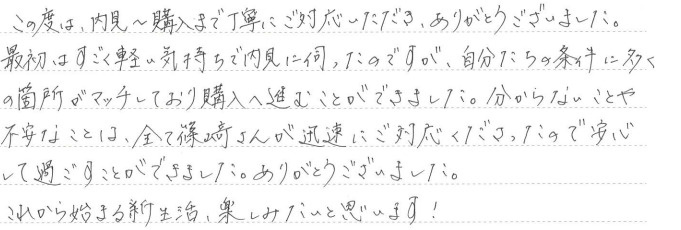 この度は、内見～購入まで丁寧にご対応いただき、ありがとうございました。
最初はすごく軽い気持ちで内見に伺ったのですが、自分たちの条件に多く
の箇所がマッチしており購入へ進むことができました。分からないことや
不安なことは、全て篠崎さんが迅速にご対応くださったので安心
して過ごすことができました。ありがとうございました。
これから始まる新生活、楽しみたいと思います！